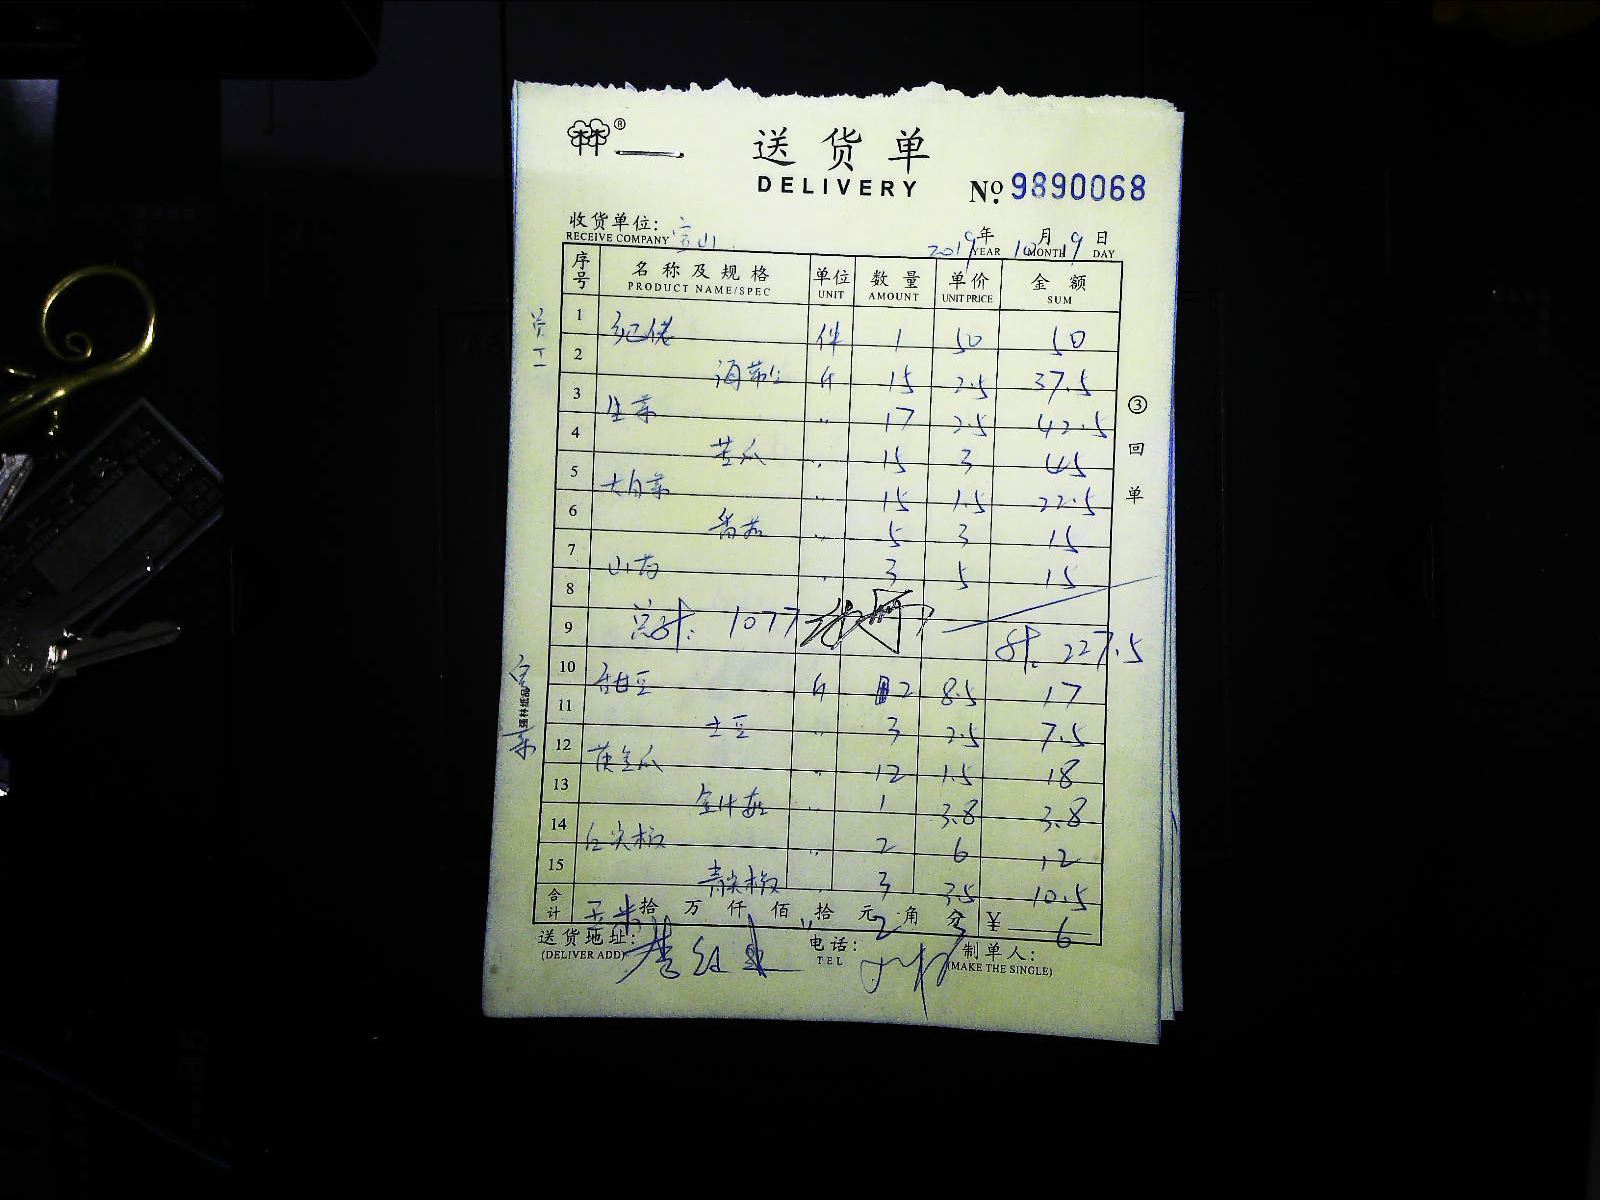 林林®
送货单
DELIVERY
№ 9890068
收货单位: 宝山
RECEIVE COMPANY
2019年 10月19日
YEAR MONTH DAY
序号 名称及规格 单位 数量 单价 金额
PRODUCT NAME/SPEC UNIT AMOUNT UNIT PRICE SUM
员工
1 件 1 50 50
2 海带 斤 15 2.5 37.5
3 生菜 〃 17 2.5 42.5
4 苦瓜 〃 15 3 45
5 大白菜 〃 15 1.5 22.5
6 番茄 〃 5 3 15
7 山药 〃 3 5 15
8
9 总计: 1077 计: 227.5
10 甜豆 斤 2 8.5 17
11 土豆 〃 3 2.5 7.5
12 黄金瓜 〃 12 1.5 18
13 金针菇 〃 1 3.8 3.8
14 红尖椒 〃 2 6 12
15 青尖椒 〃 3 3.5 10.5
玉米 〃 2 3 6
合计 拾 万 仟 佰 拾 元 角 分 ¥
送货地址: 电话: 制单人:
(DELIVER ADD) TEL (MAKE THE SINGLE)
③回单
强林纸品